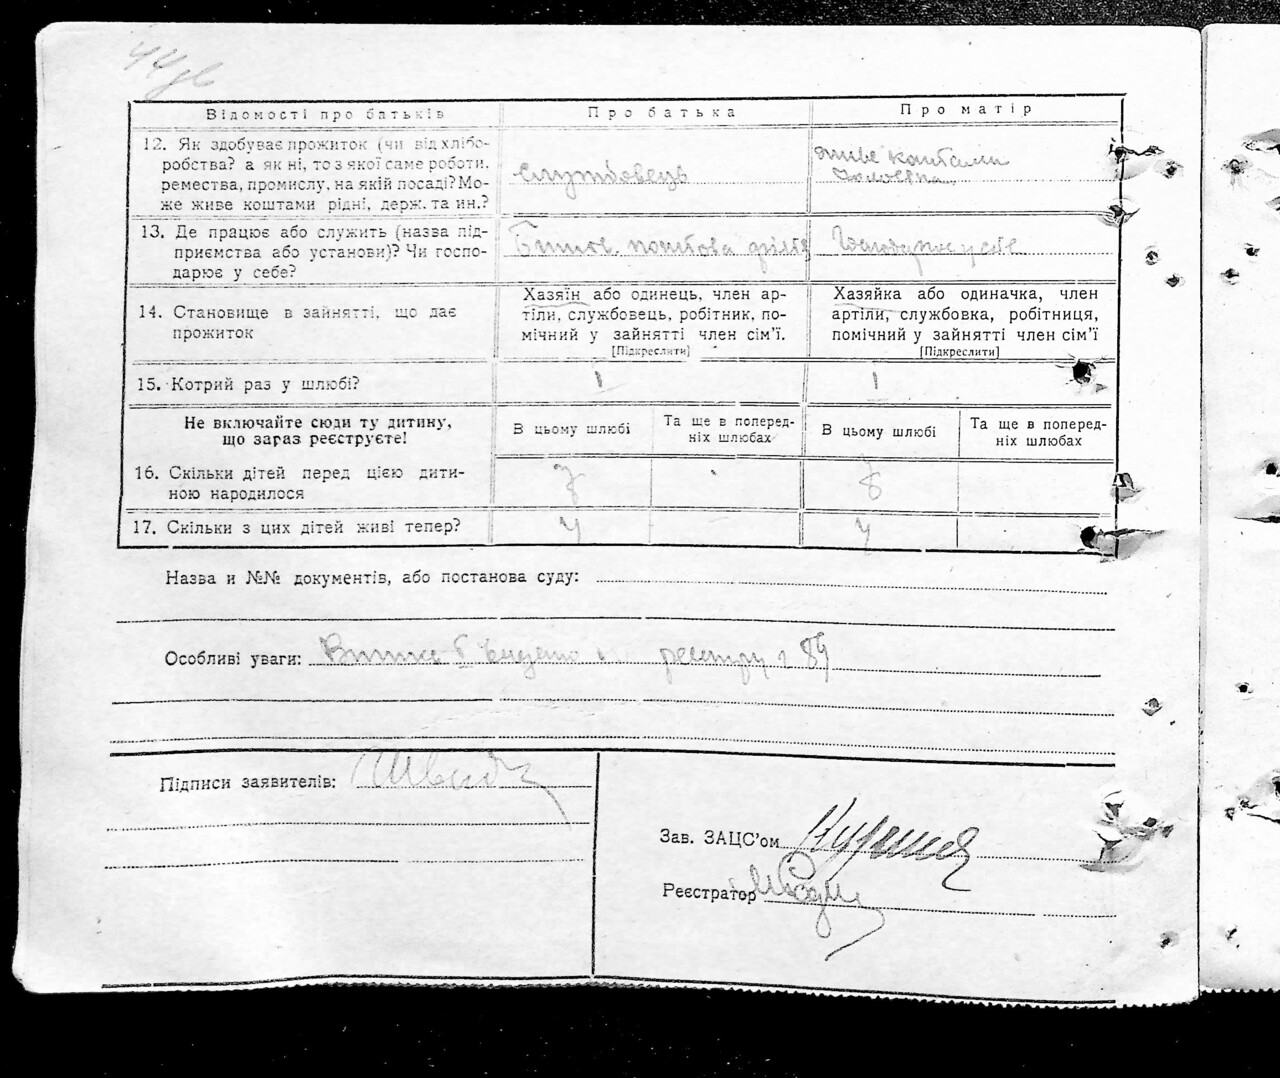 44 зв
Відомості про батьків
Про батька
Про матір
12. Як здобуває прожиток (чи від хлібо-
робства? а як ні, то з якої саме роботи,
ремества, промислу, на якій посаді? Мо-
же живе коштами рідні, держ. та ин.?
службовець
живе коштами
чоловіка
13. Де працює або служить (назва під-
приємства або установи)? Чи госпо-
дарює у себе?
поштова філія
Господарює у себе
14. Становище в зайнятті, що дає
прожиток
Хазяїн або одинець, член ар-
тілі, службовець, робітник, по-
мічний у зайнятті член сім'ї.
[Підкреслити]
Хазяйка або одиначка, член
артілі, службовка, робітниця,
помічний у зайнятті член сім'ї
[Підкреслити]
15. Котрий раз у шлюбі?
1
1
Не включайте сюди ту дитину,
що зараз реєструєте!
В цьому шлюбі
Та ще в поперед-
ніх шлюбах
В цьому шлюбі
Та ще в поперед-
ніх шлюбах
16. Скільки дітей перед цією дити-
ною народилося
17. Скільки з цих дітей живі тепер?
4
4
Назва и №№ документів, або постанова суду:
Особливі уваги: реєстру 89
Підписи заявителів:
Зав. ЗАЦС'ом
Реєстратор